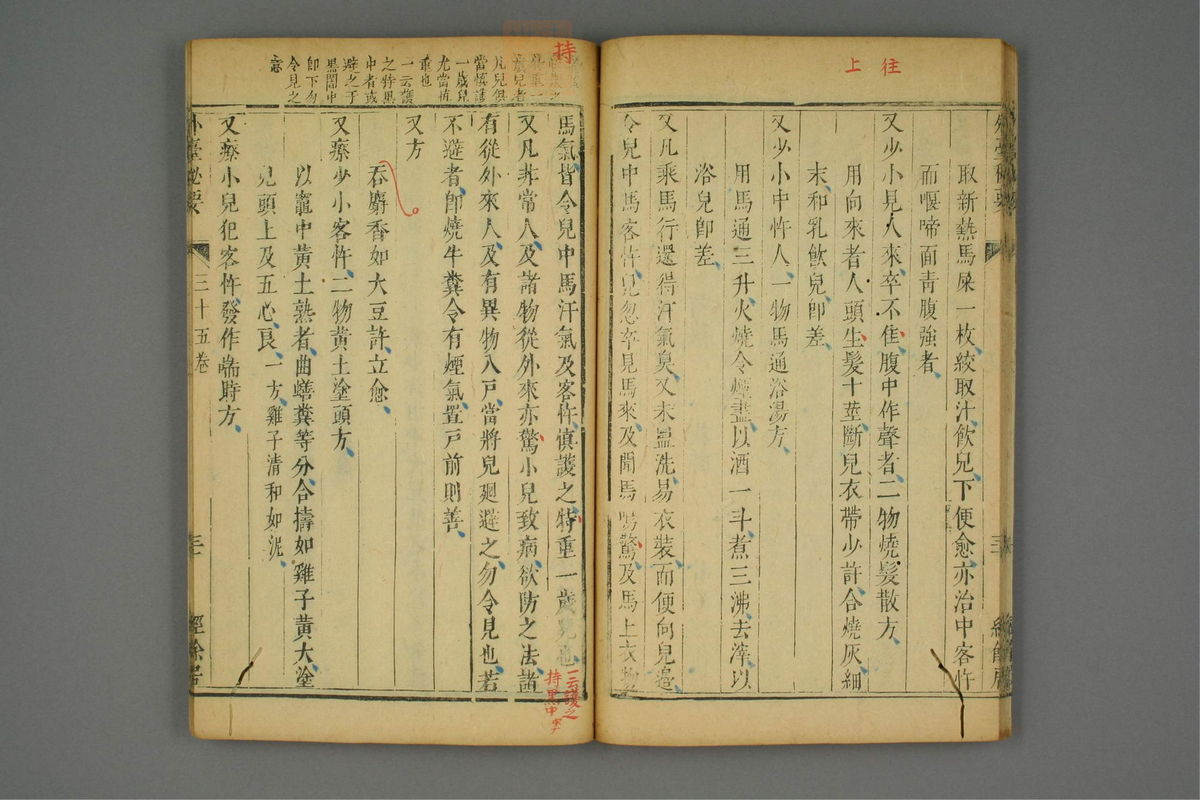 往
上
取新熱馬屎一枚絞取汁飲兒下便愈亦治中客忤
而㘈啼面青腹強者
又少小見人來卒不佳腹中作聲者二物燒髮散方
用向來者人頭生髮十莖斷兒衣帶少許合燒灰細
末和乳飲兒即差
又少小中忤人一物馬通浴湯方
用馬通三升火燒令煙盡以酒一斗煮三沸去滓以
浴兒即差
又凡乘馬行還得汗氣臭又未盥洗易衣裝而便向兒邊
令兒中馬客忤兒忽卒見馬來及聞馬鳴驚及馬上衣物
持
兒者
凡兒俱
當慎護
一歲兒
尤當慎
重也
一云護
之特黑
中者或
避之于
黑闇中
即下勿
令見之
意
馬氣皆令兒中馬汗氣及客忤慎護之特重一歲兒也
一云護之
持黑中
又凡非常人及諸物從外來亦驚小兒致病欲防之法諸
有從外來人及有異物入戶當將兒廻避之勿令見也若
不避者即燒牛糞令有煙氣置戶前則善
又方
吞麝香如大豆許立愈
又療少小客忤二物黃土塗頭方
以竈中黃土熟者曲蟮糞等分合擣如雞子黃大塗
兒頭上及五心良一方雞子清和如泥
又療小兒犯客忤發作㖞時方
外臺秘要
三十五卷
三
經餘居